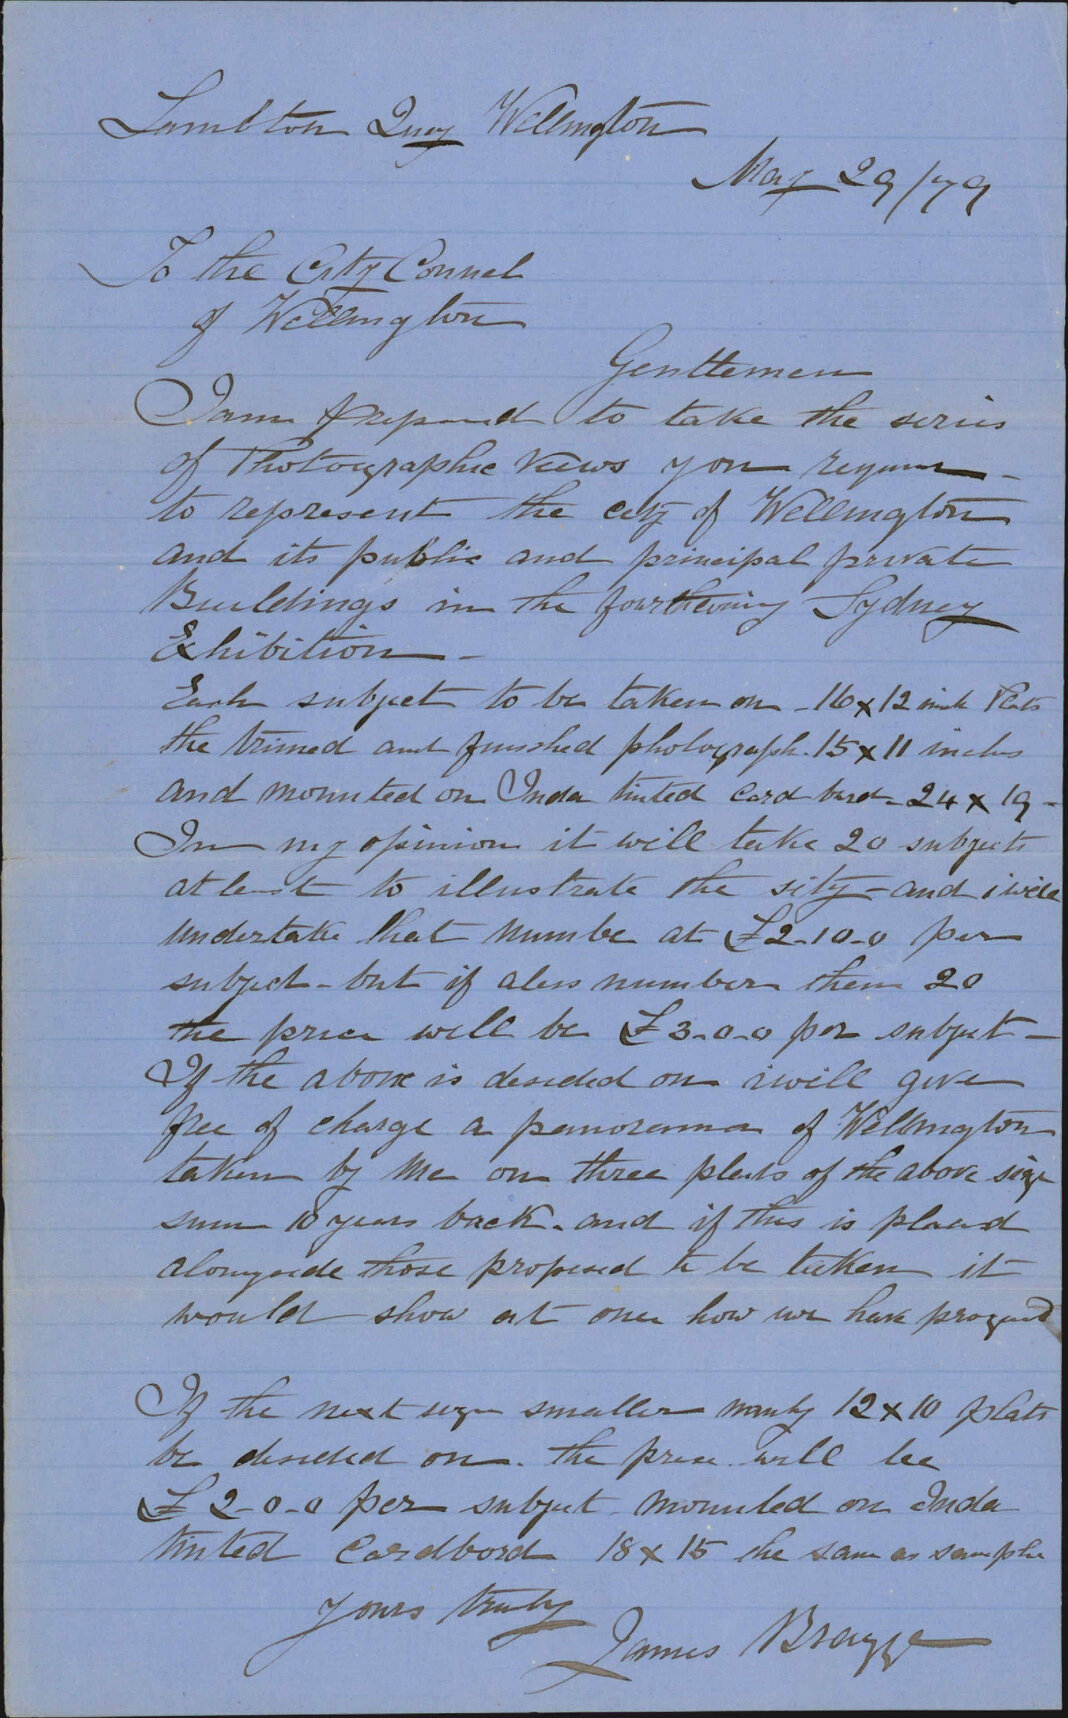 Lambton Quay Wellington
May 29/79
To the City Counsel
of Wellington
Gentlemen
I am prepared to take the series
of Photographic Views you require -
to represent the city of Wellington
and its public and principal private
Buildings in the fourthcoming Sydney
Exhibition -
Each subject to be taken on - 16 x 12 inch Plats
the trimed and finished photograph. 15 x 11 inches
and mounted on Inda tinted Card burd - 24 x 19 -
In my opinion it will take 20 subjects
at least to illustrate the sity - and i will
undertake that numbe at £2-10-0 per
subject - but if a less number then 20
the price will be £3-0-0 per subject -
If the above is desided on i will give
free of charge a panorama of Wellington
taken by me on three plats of the above size
sum 10 years back - and if this is placed
alongside those proposed to be taken it
would show at once how we have
If the next size smaller 12 x 10 plats
be desided on. the price will be
£2-0-0 per subject mounted on Inda
tinted Cardbord 18 x 15 the same as sample
Yours truly
James Bragge